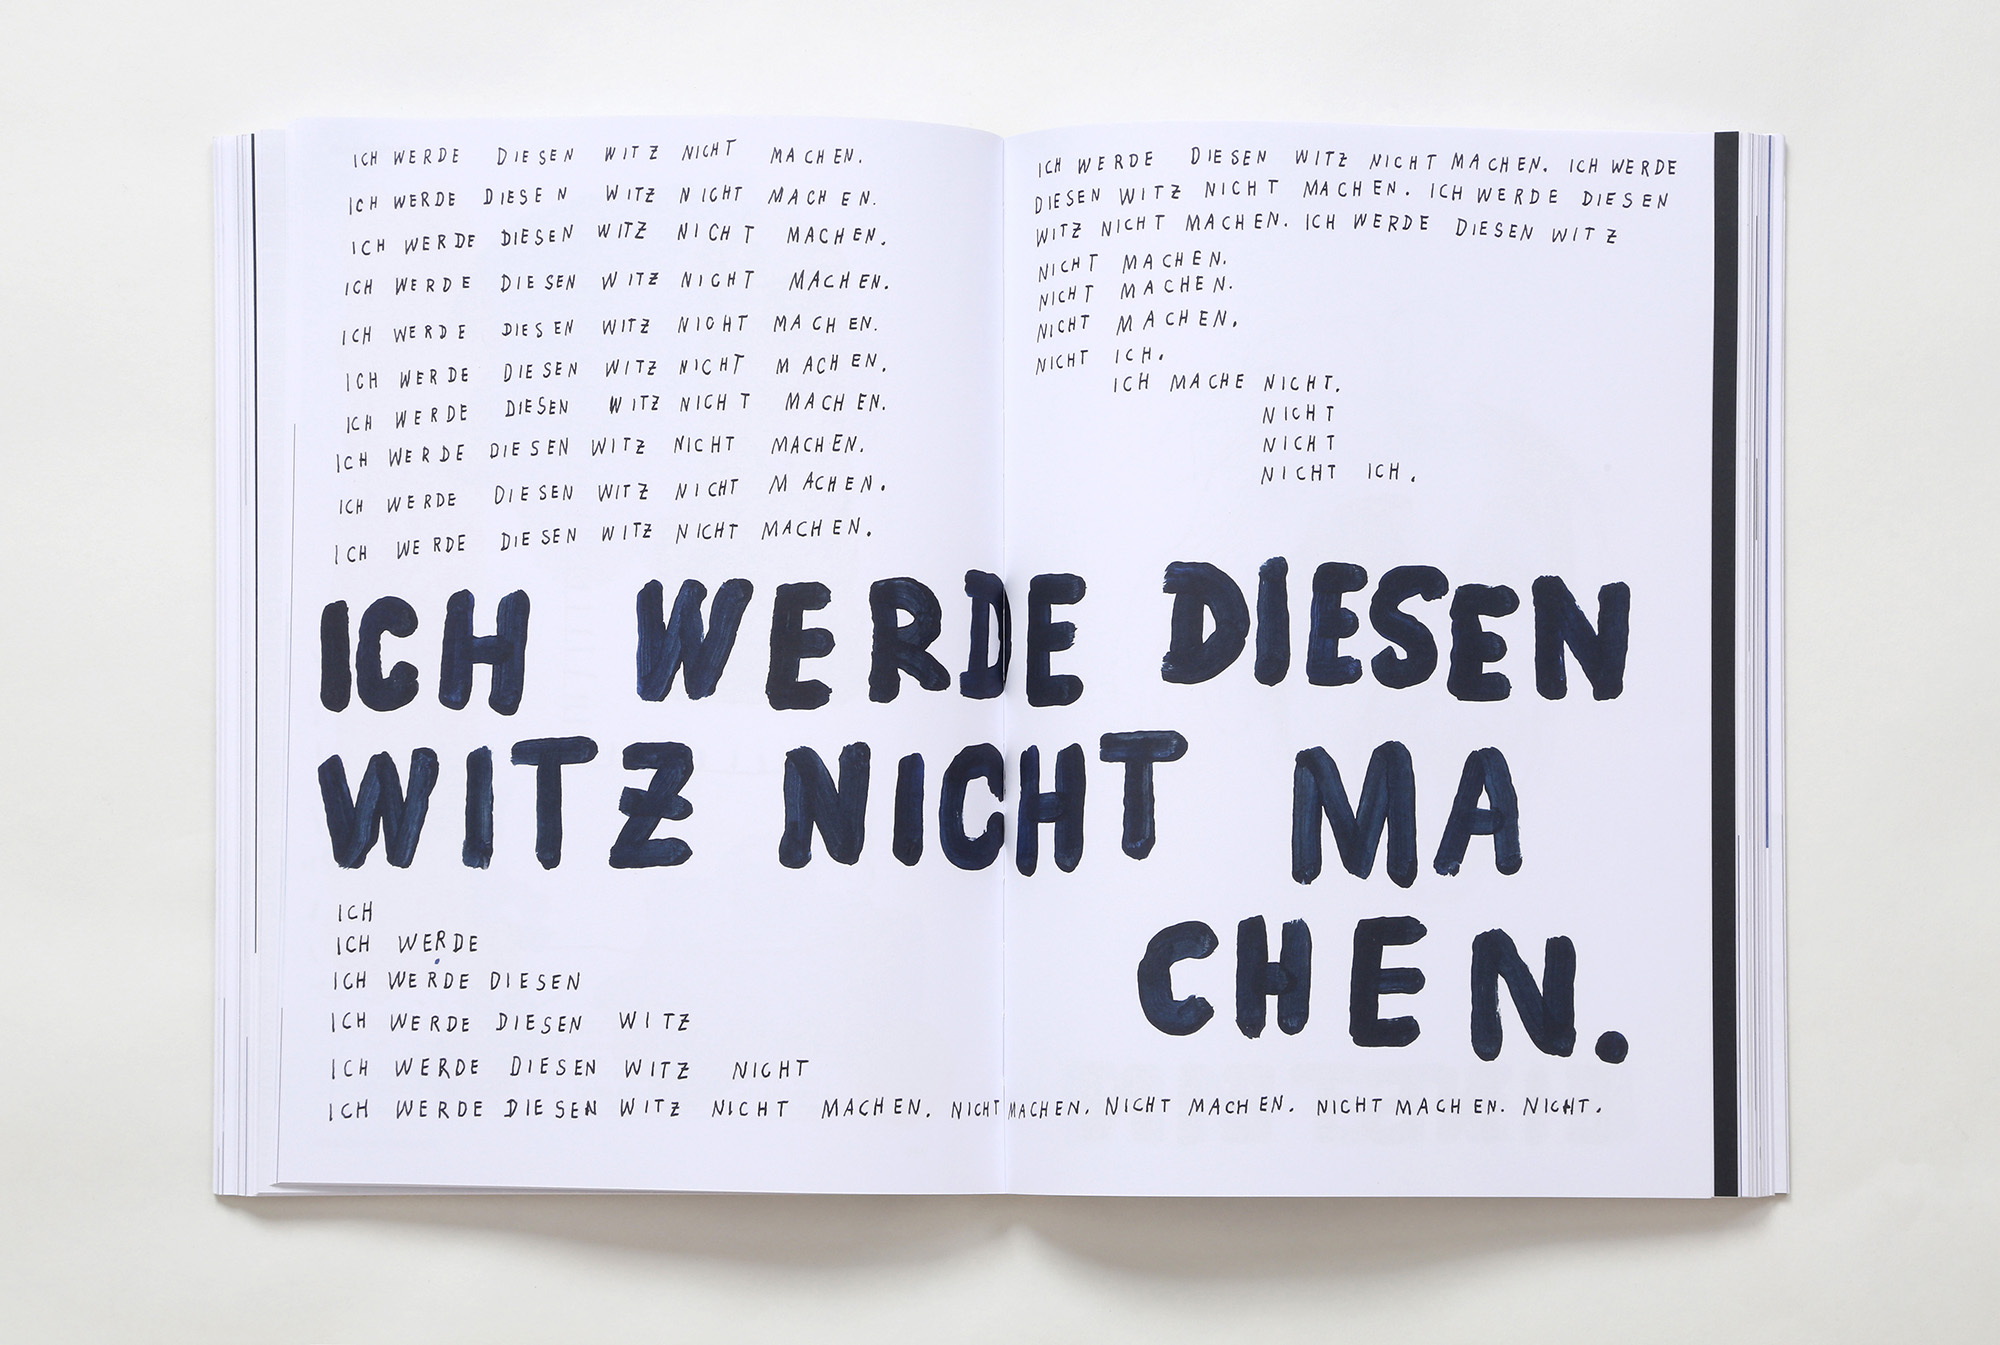 ICH WERDE DIESEN WITZ NICHT MACHEN.
ICH WERDE DIESEN WITZ NICHT MACHEN.
ICH WERDE DIESEN WITZ NICHT MACHEN.
ICH WERDE DIESEN WITZ NICHT MACHEN.
ICH WERDE DIESEN WITZ NICHT MACHEN.
ICH WERDE DIESEN WITZ NICHT MACHEN.
ICH WERDE DIESEN WITZ NICHT MACHEN.
ICH WERDE DIESEN WITZ NICHT MACHEN.
ICH WERDE DIESEN WITZ NICHT MACHEN.
ICH WERDE DIESEN WITZ NICHT MACHEN.
ICH WERDE DIESEN WITZ NICHT MACHEN. ICH WERDE
DIESEN WITZ NICHT MACHEN. ICH WERDE DIESEN
WITZ NICHT MACHEN. ICH WERDE DIESEN WITZ
NICHT MACHEN.
NICHT MACHEN.
NICHT MACHEN.
NICHT ICH.
ICH MACHE NICHT.
NICHT
NICHT
NICHT ICH.
ICH WERDE DIESEN
WITZ NICHT MA
CHEN.
ICH
ICH WERDE
ICH WERDE DIESEN
ICH WERDE DIESEN WITZ
ICH WERDE DIESEN WITZ NICHT
ICH WERDE DIESEN WITZ NICHT MACHEN. NICHT MACHEN. NICHT MACHEN. NICHT MACHEN. NICHT.